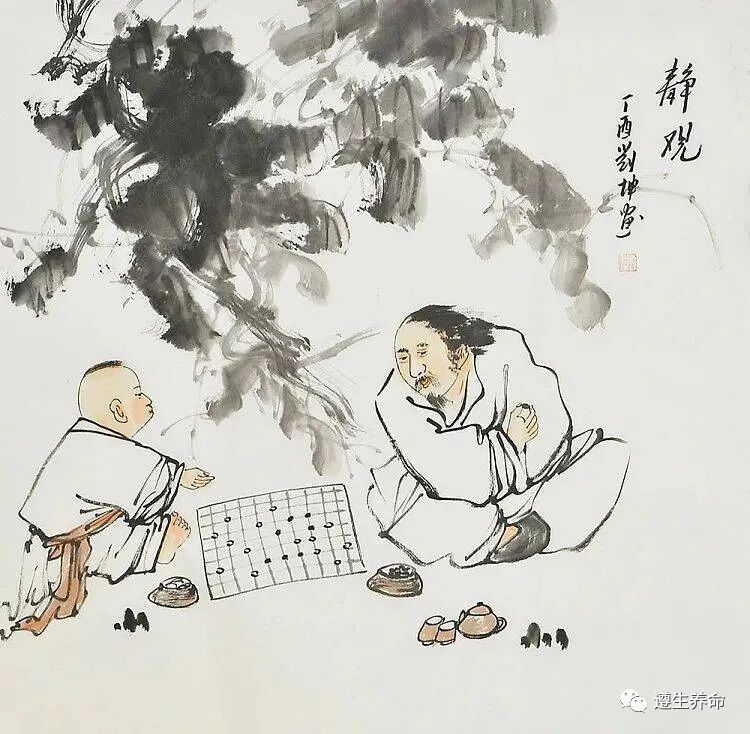 静观
丁酉刘坤画
遵生养命